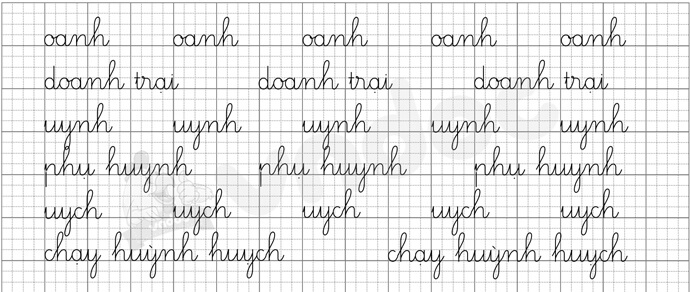 oanh oanh oanh oanh oanh
doanh trại doanh trại doanh trại
uynh uynh uynh uynh uynh
phụ huynh phụ huynh phụ huynh
uych uych uych uych uych
chạy huỳnh huỵch chạy huỳnh huỵch